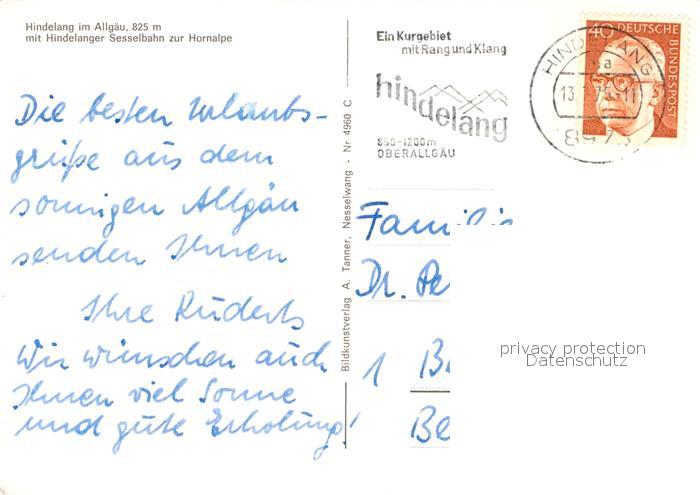 Hindelang im Allgäu, 825 m
mit Hindelanger Sesselbahn zur Hornalpe
Die besten Urlaubs-
grüße aus dem
sonnigen Allgäu
senden Ihnen
Ihre Ruderts
Wir wünschen auch
Ihnen viel Sonne
und gute Erholung!
Bildkunstverlag A. Tanner, Nesselwang - Nr 4960 C
Ein Kurgebiet
mit Rang und Klang
hindelang
850-1200m
OBERALLGÄU
HINDELANG
a
13.
897
40 DEUTSCHE
BUNDESPOST
Familie
Dr. Pe
1 B
Be
privacy protection
Datenschutz